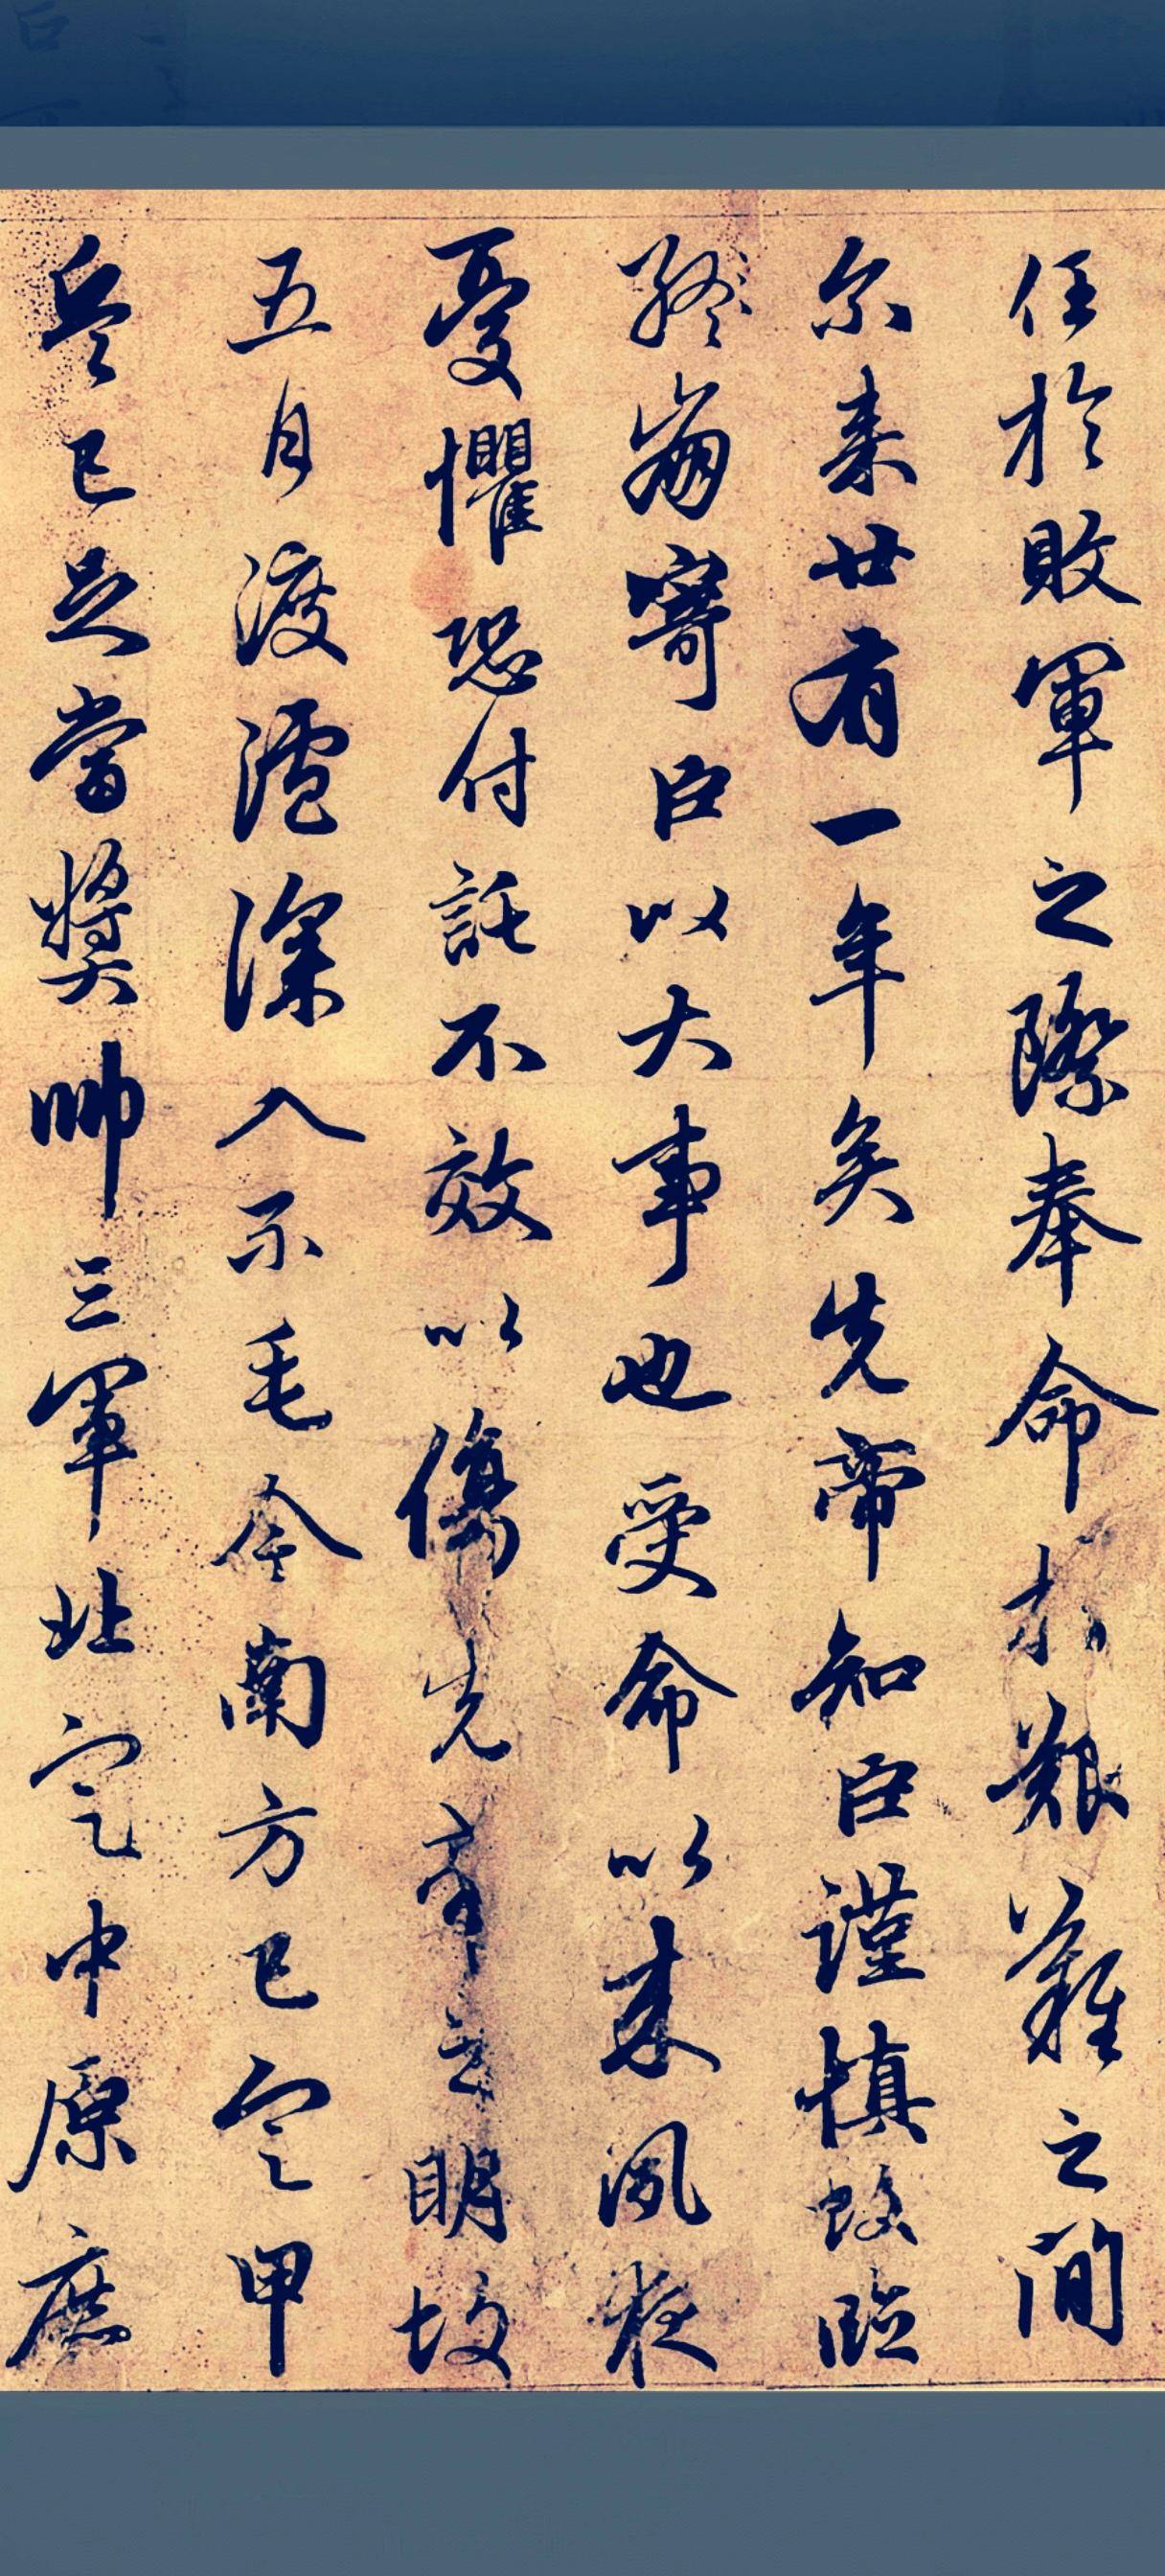 任於敗軍之際奉命於艱難之間
尔来廿有一年矣先帝知臣謹慎故臨
終崩寄臣以大事也受命以来夙夜
憂懼恐付託不效以傷先帝之明故
五月渡瀘深入不毛今南方已定甲
兵已足當奬帥三軍北定中原庶